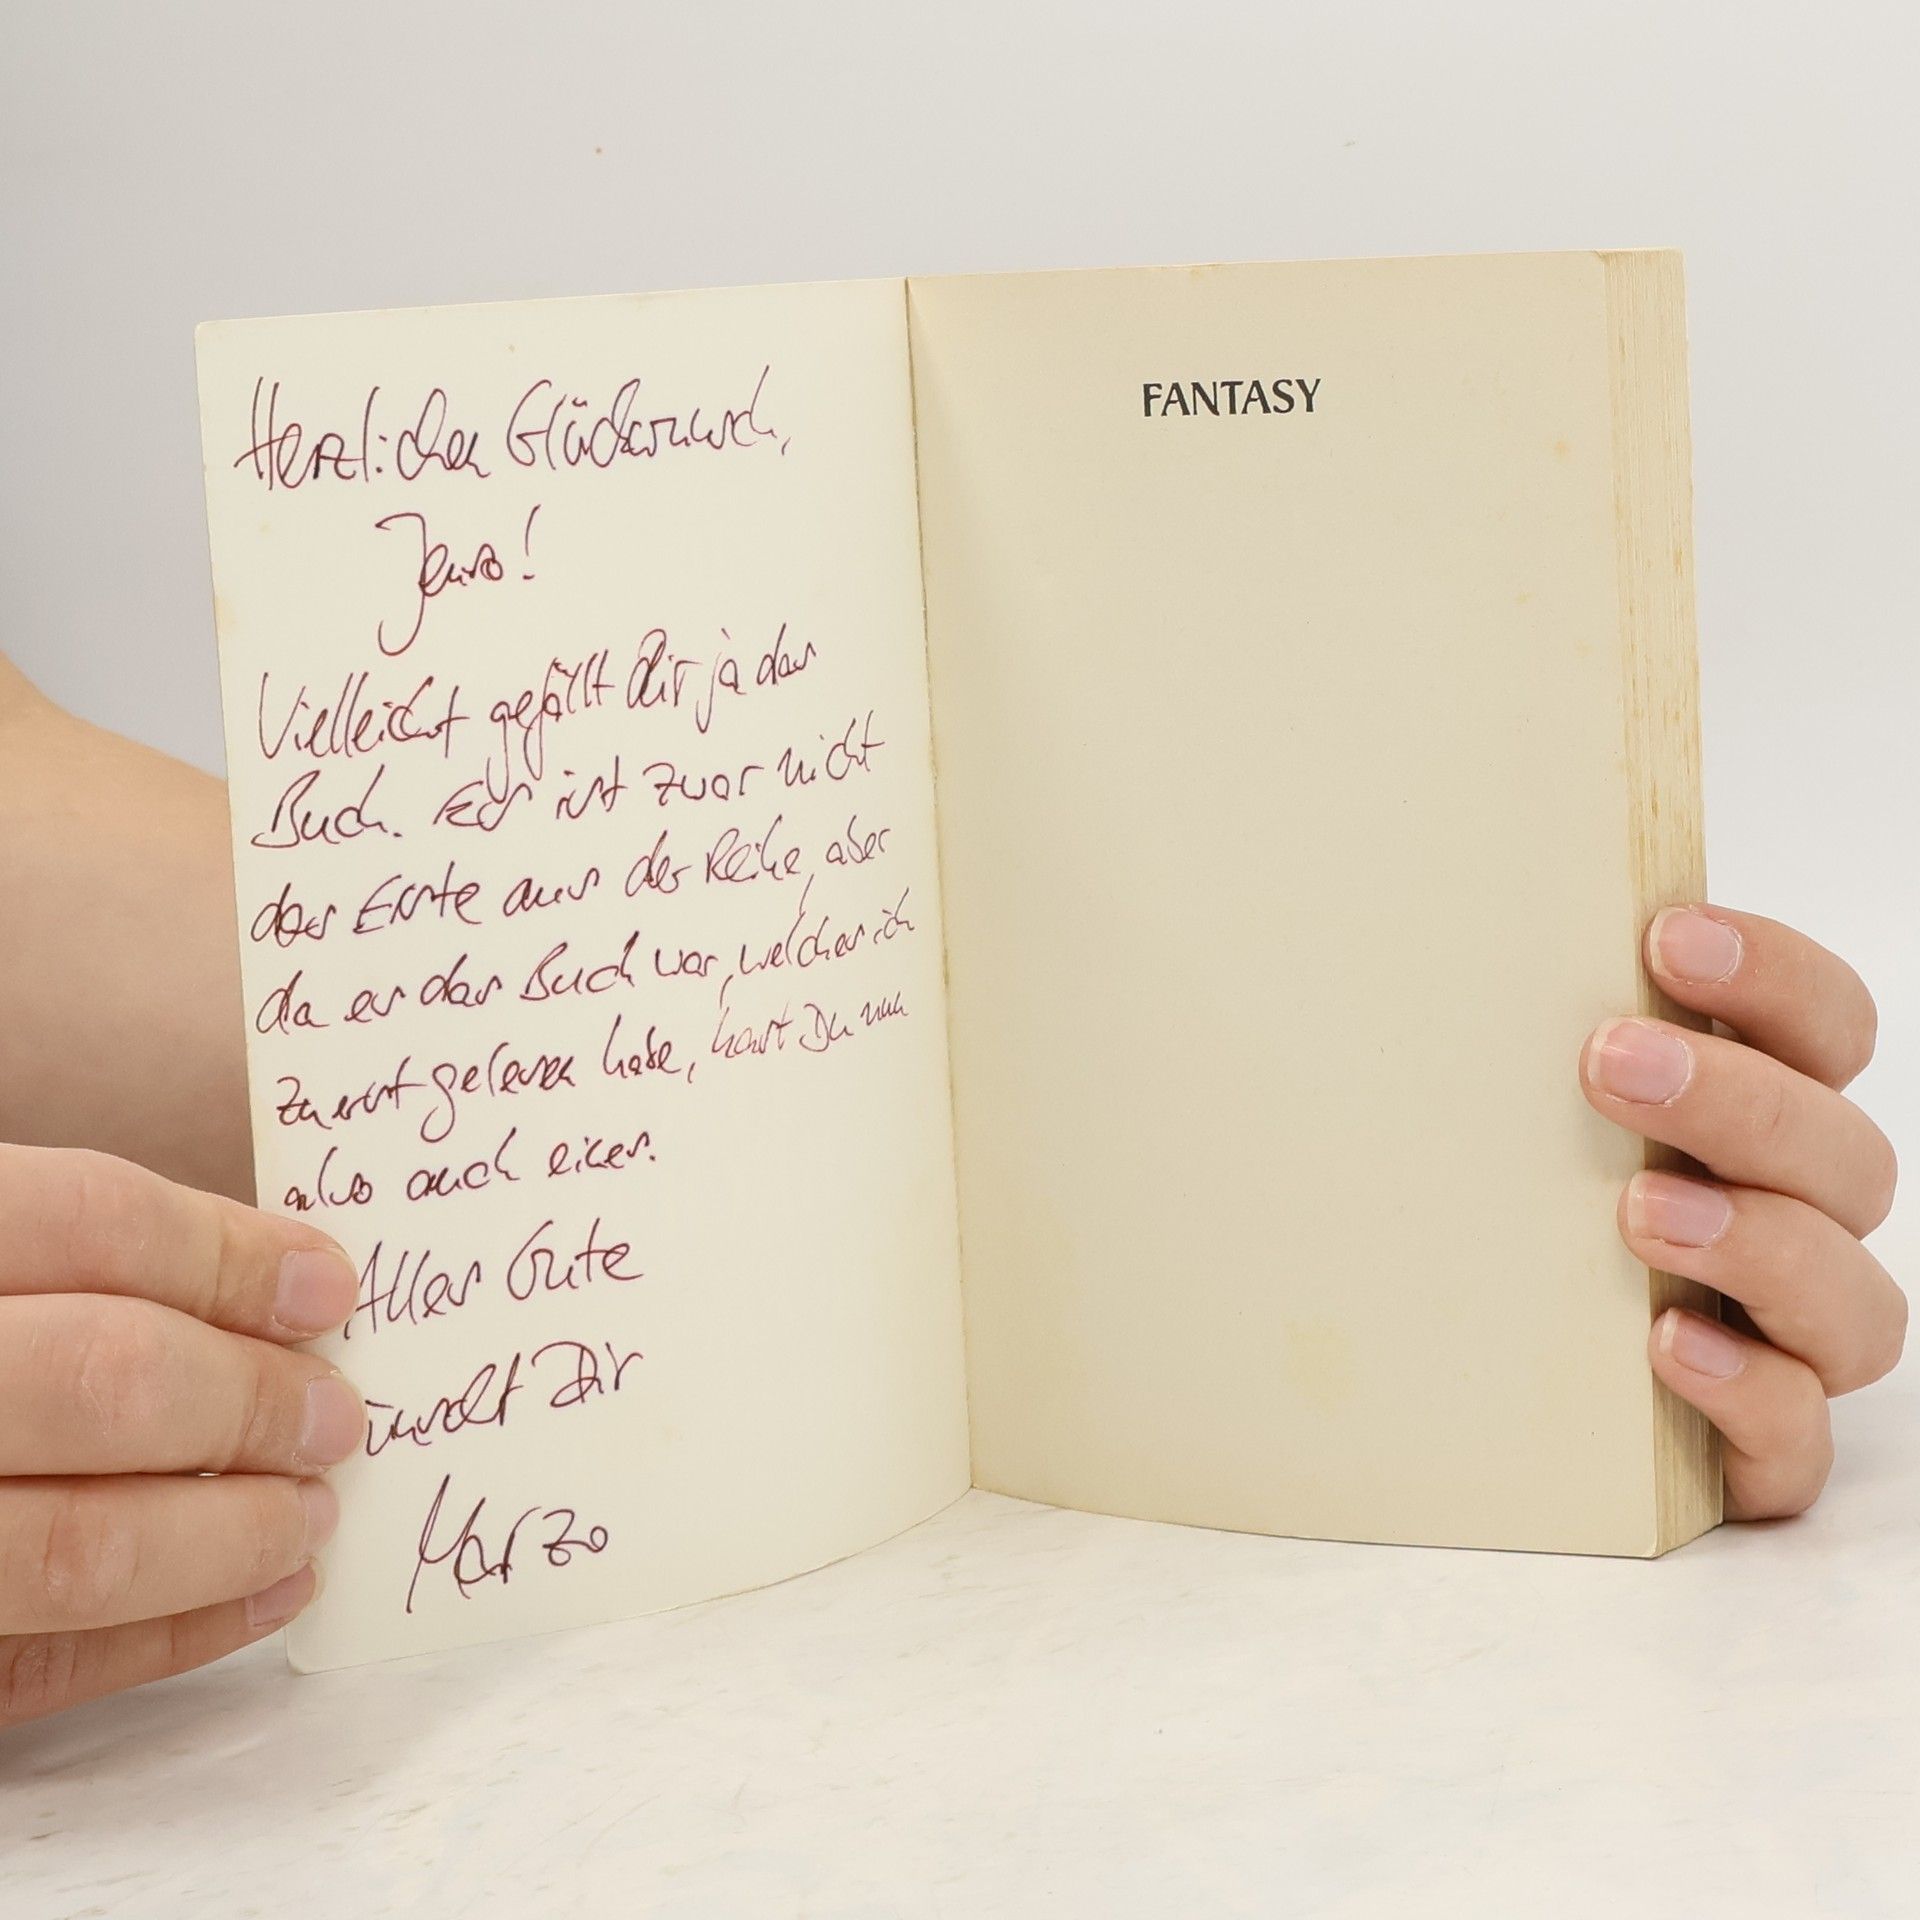 Herzlichen Glückwunsch,
Jens!
Vielleicht gefällt Dir ja das
Buch. Es ist zwar nicht
das Erste aus der Reihe, aber
da es das Buch war, welches ich
zuerst gelesen habe, hast Du nun
also auch eines.
Alles Gute
ünscht Dir
Marzo
FANTASY